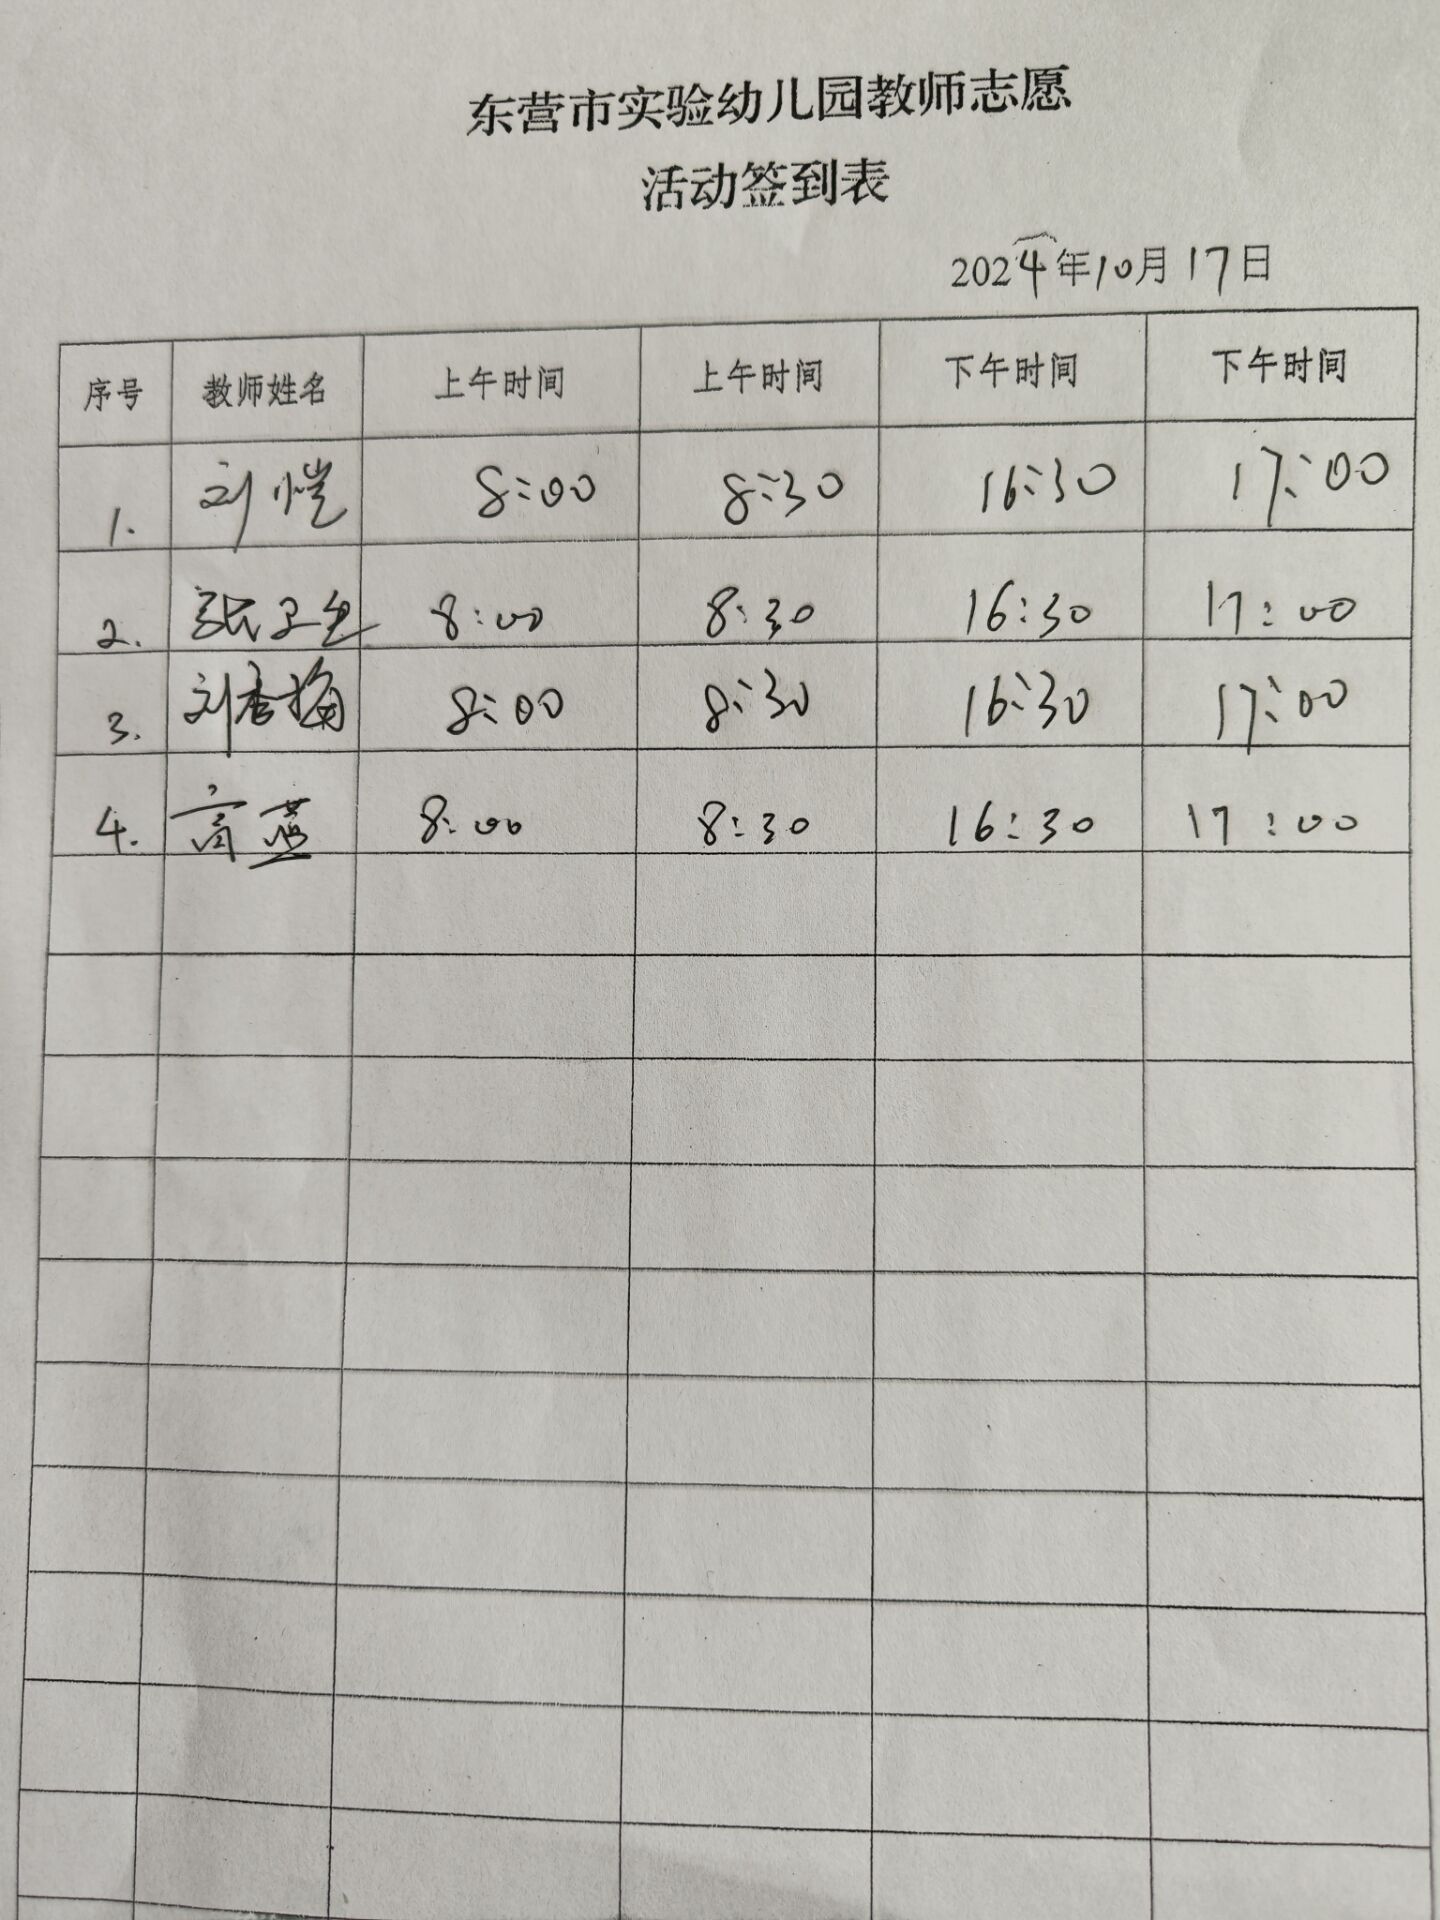 东营市实验幼儿园教师志愿
活动签到表
2024年10月17日
序号 教师姓名 上午时间 上午时间 下午时间 下午时间
1. 刘恺 8:00 8:30 16:30 17:00
2. 张卫 8:00 8:30 16:30 17:00
3. 刘香梅 8:00 8:30 16:30 17:00
4. 高燕 8:00 8:30 16:30 17:00